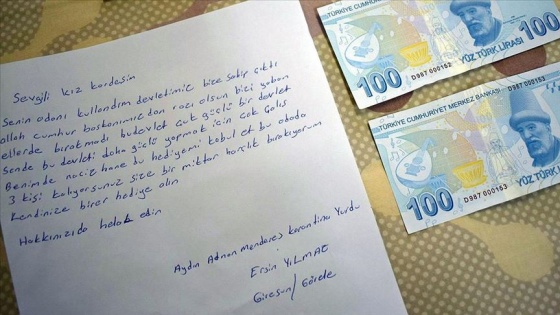 Sevgili kız kardeşim
Senin odanı kullandım devletimiz bize sahip çıktı
allah cumhur başkanımızdan razı olsun bizi yaban
ellerde bırakmadı budevlet çok güçlü bir devlet
Sende bu devleti daha güçlü yapmak için çok Çalış
Benimde naciz hane bu hediyemi kabul et bu odada
3 kişi kalıyorsunuz size bir miktar harçlık bırakıyorum
Kendinize birer hediye alın
Hakkınızıda helal edin
Aydın Adnan Menderes karantina Yurdu
Ersin YILMAZ
Giresun/Görele
TÜRKİYE CUMHURİYET
100
D987 000152
YÜZ TÜRK LİRASI
100
TÜRKİYE CUMHURİYET MERKEZ BANKASI
D987 000153
100
D987 000153
YÜZ TÜRK